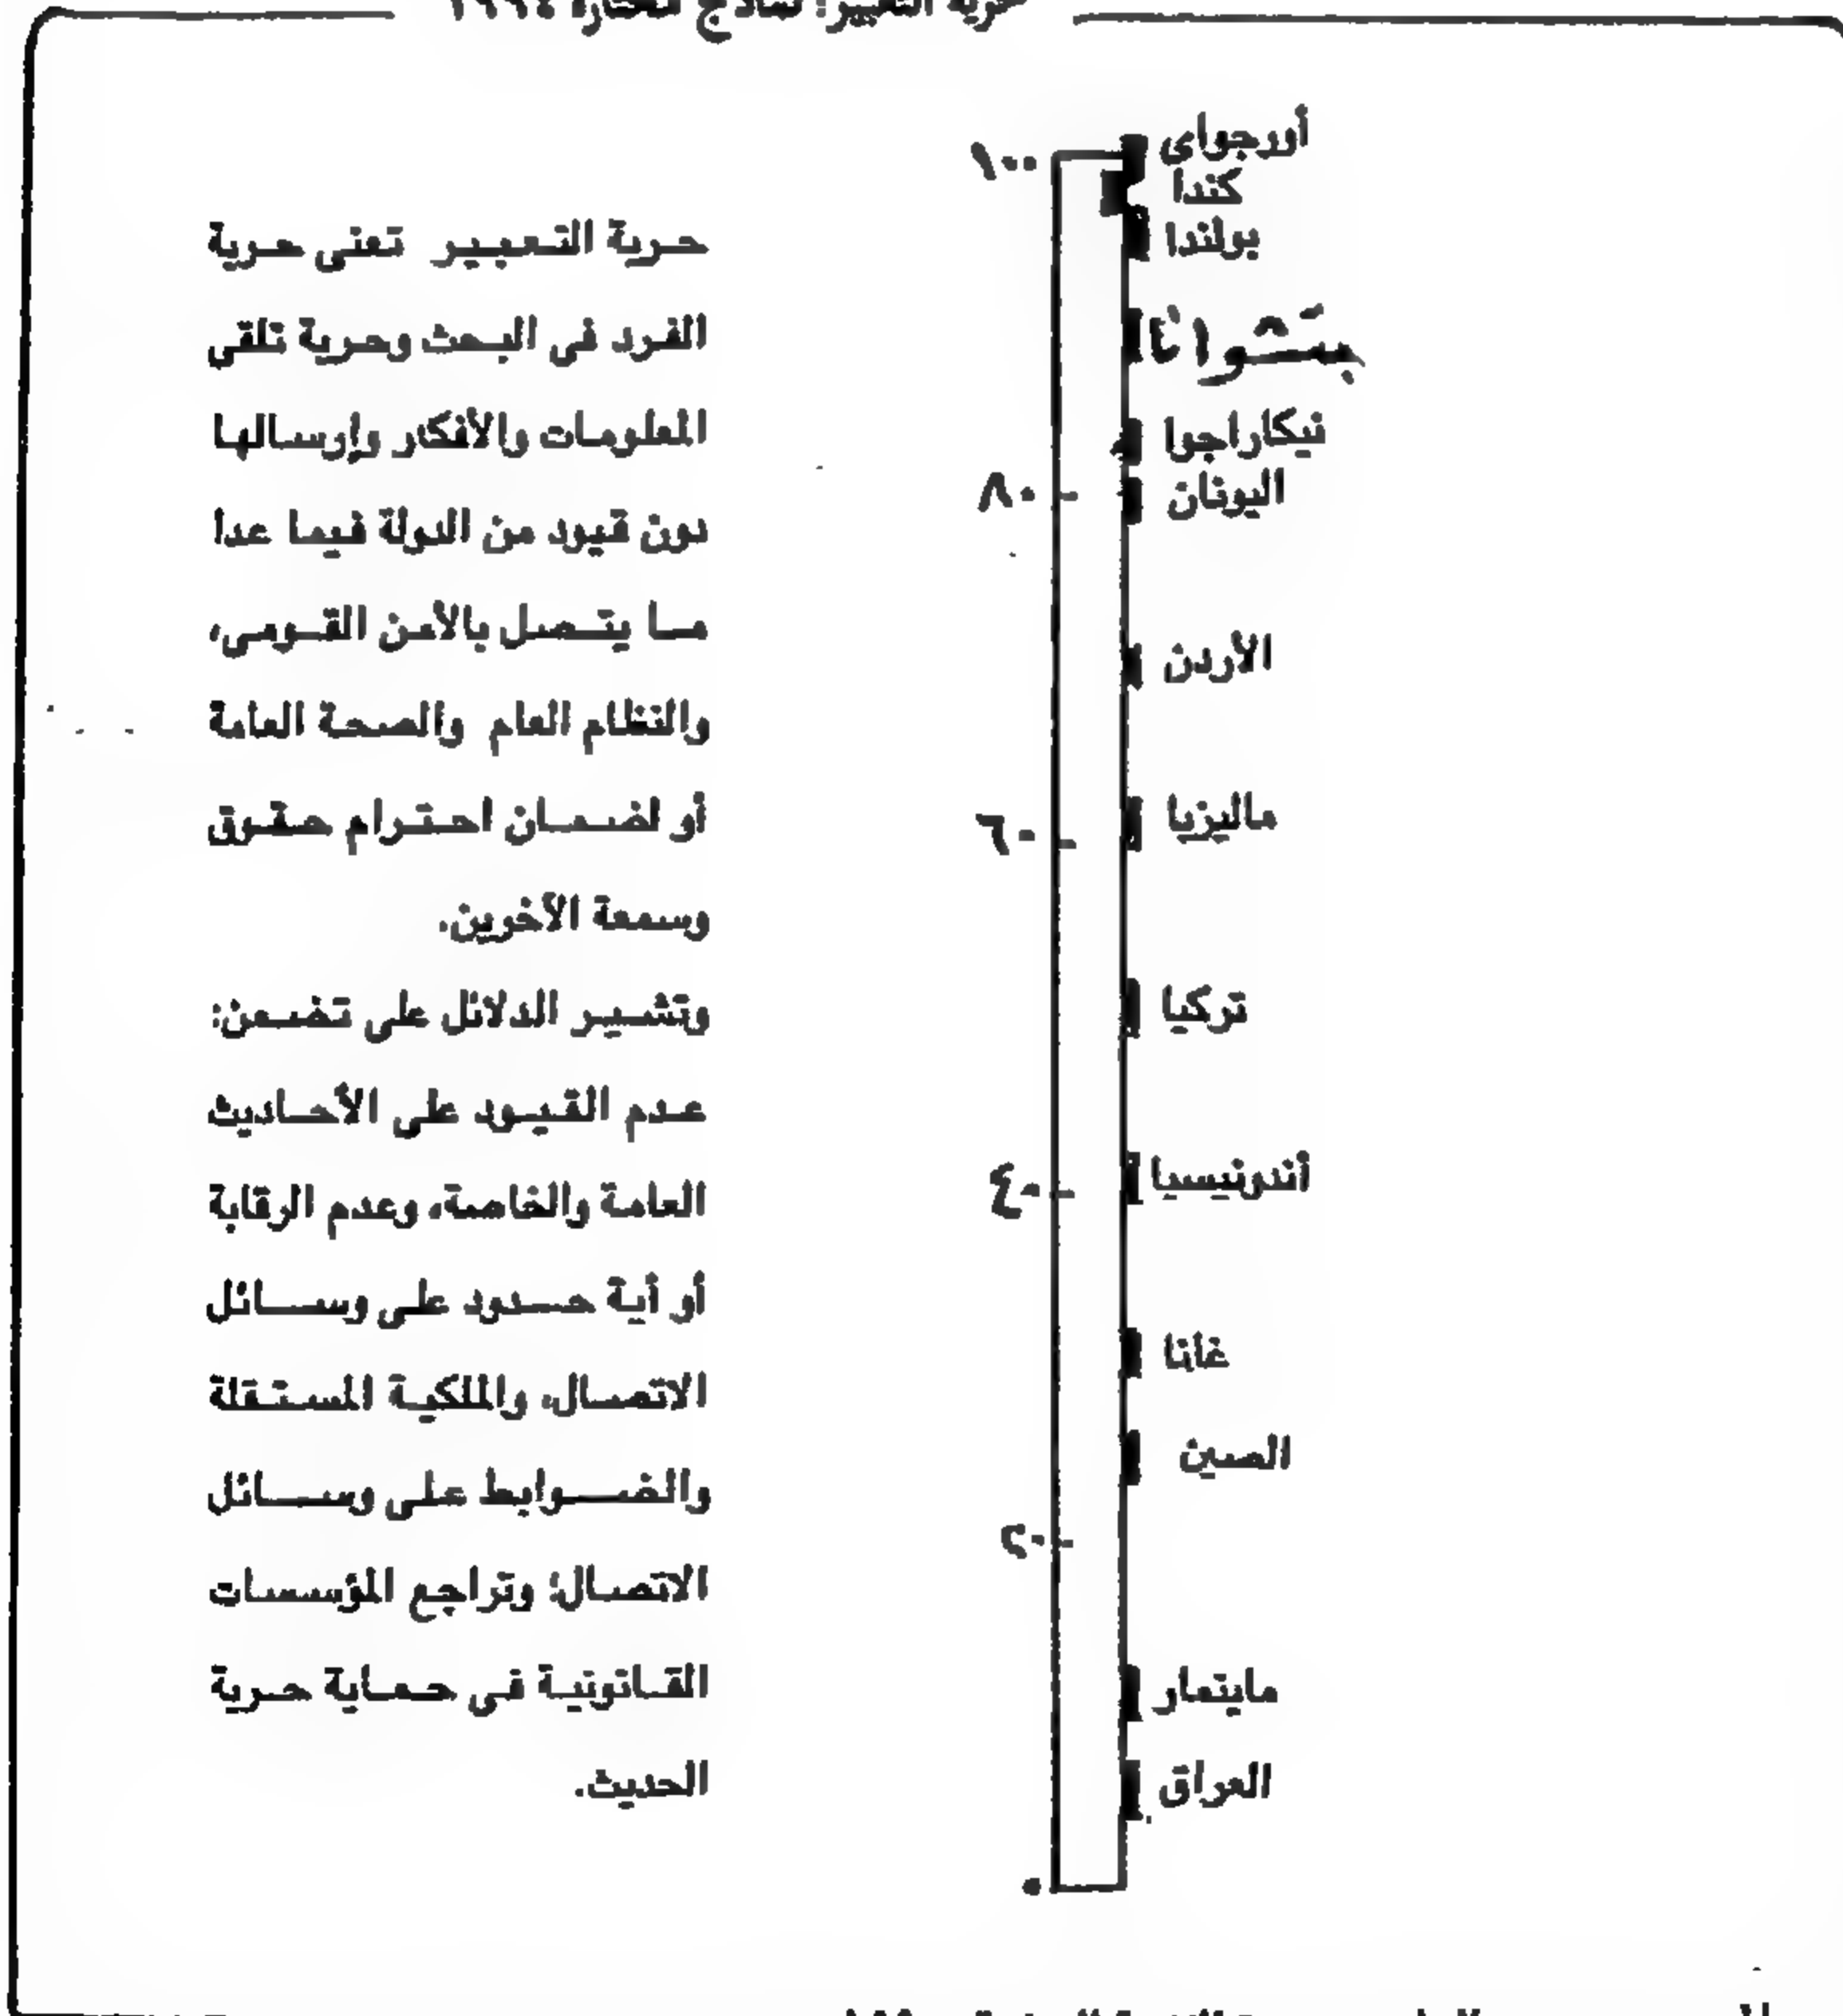 حرية التعبير: نماذج مختارة ١٩٩٤
١٠٠
٨٠
٦٠
٤٠
٢٠
٠
أورجواى
كندا
بولندا
نيكاراجوا
اليونان
الأردن
ماليزيا
تركيا
أندونيسيا
غانا
الصين
ماينمار
العراق
حرية التعبير تعنى حرية
الفرد فى البحث وحرية تلقى
المعلومات والأفكار وإرسالها
دون قيود من الدولة فيما عدا
ما يتصل بالأمن القومى،
والنظام العام والصحة العامة
أو لضمان احترام حقوق
وسمعة الآخرين.
وتشير الدلائل على تضمن:
عدم القيود على الأحاديث
العامة والخاصة، وعدم الرقابة
أو أية حدود على وسائل
الاتصال، والملكية المستقلة
والضوابط على وسائل
الاتصال؛ وتراجع المؤسسات
القانونية فى حماية حرية
الحديث.